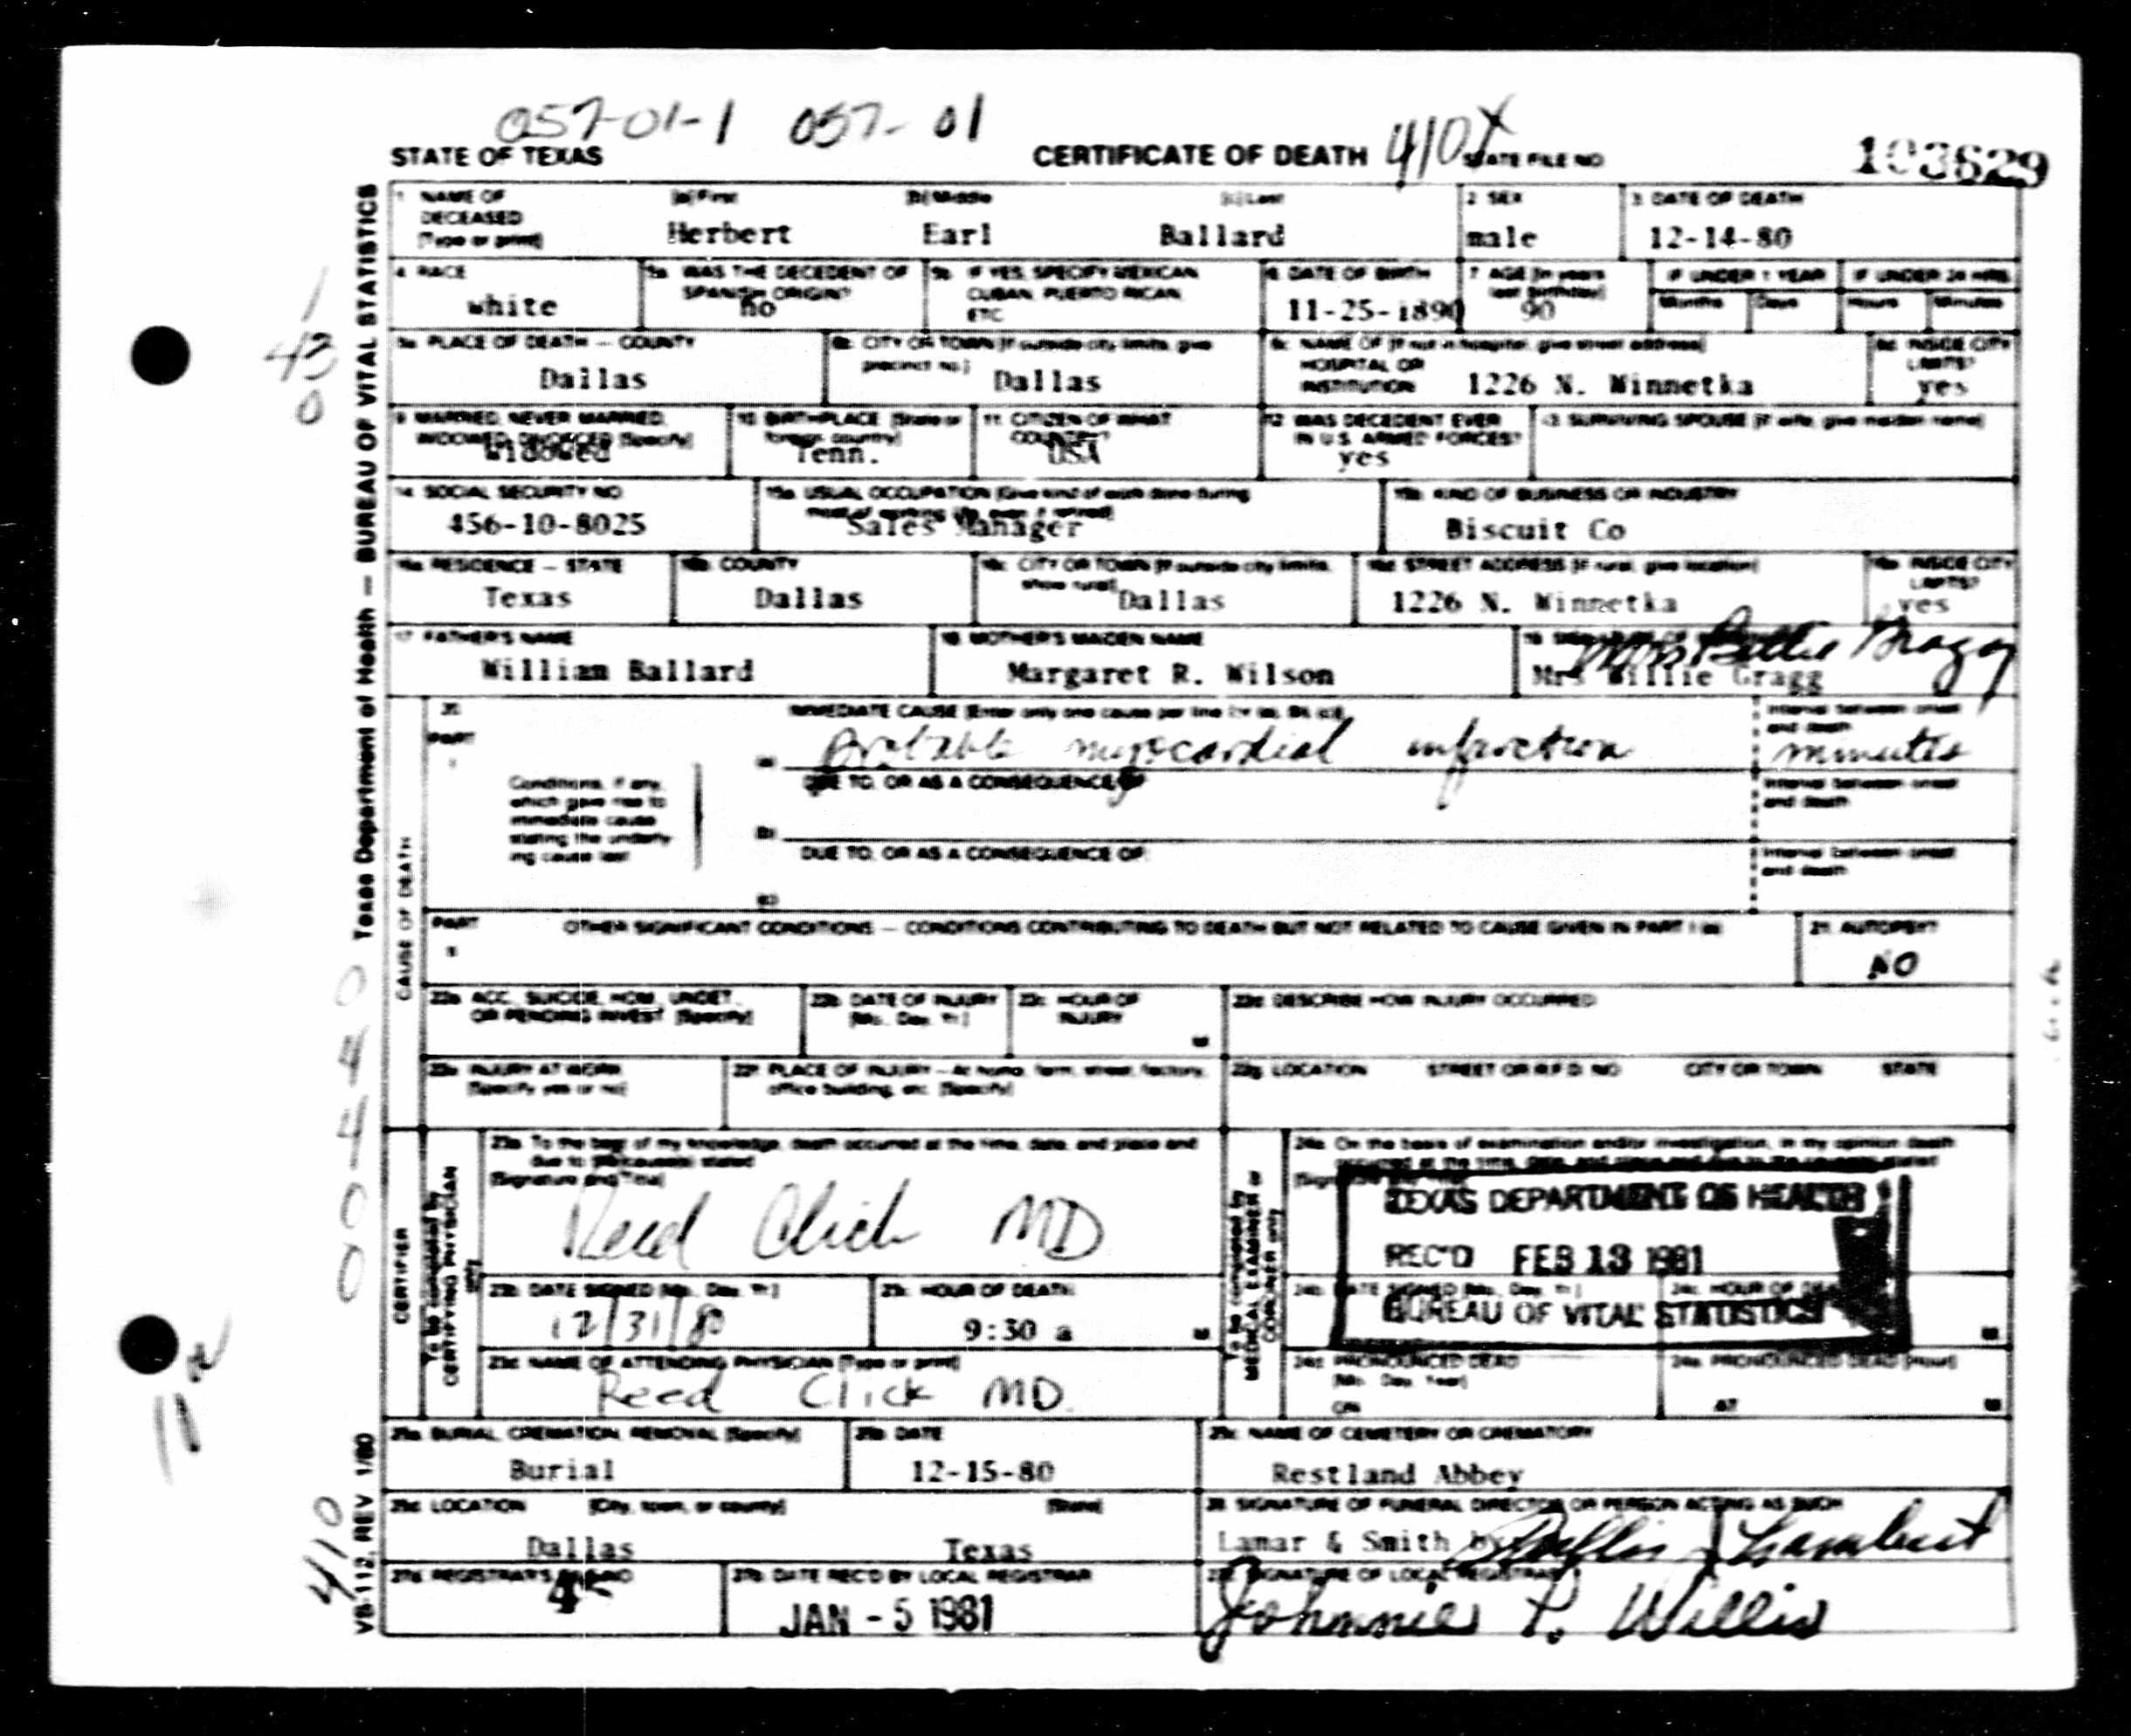 057-01-1 057-01
STATE OF TEXAS CERTIFICATE OF DEATH 410X STATE FILE NO 103629
Texas Department of Health — BUREAU OF VITAL STATISTICS
1 NAME OF DECEASED [Type or print] [a] First [b] Middle [c] Last 2 SEX 3 DATE OF DEATH
Herbert Earl Ballard male 12-14-80
4 RACE 5a WAS THE DECEDENT OF SPANISH ORIGIN? 5b IF YES, SPECIFY MEXICAN CUBAN, PUERTO RICAN, ETC 6 DATE OF BIRTH 7 AGE [In years last birthday] IF UNDER 1 YEAR IF UNDER 24 HRS
Months Days Hours Minutes
white no 11-25-1890 90
1
43
0
8a PLACE OF DEATH — COUNTY 8b CITY OR TOWN [If outside city limits, give precinct no.] 8c NAME OF [If not in hospital, give street address] HOSPITAL OR INSTITUTION 8d INSIDE CITY LIMITS?
Dallas Dallas 1226 N. Winnetka yes
9 MARRIED, NEVER MARRIED, WIDOWED, DIVORCED [Specify] 10 BIRTHPLACE [State or foreign country] 11 CITIZEN OF WHAT COUNTRY? 12 WAS DECEDENT EVER IN U.S. ARMED FORCES? 13 SURVIVING SPOUSE [If wife, give maiden name]
Widowed Tenn. USA yes
14 SOCIAL SECURITY NO 15a USUAL OCCUPATION [Give kind of work done during most of working life, even if retired] 15b KIND OF BUSINESS OR INDUSTRY
456-10-8025 Sales Manager Biscuit Co
16a RESIDENCE — STATE 16b COUNTY 16c CITY OR TOWN [If outside city limits, show rural] 16d STREET ADDRESS [If rural, give location] 16e INSIDE CITY LIMITS?
Texas Dallas Dallas 1226 N. Winnetka yes
17 FATHER'S NAME 18 MOTHER'S MAIDEN NAME 19
William Ballard Margaret R. Wilson Mrs Billie Gragg
CAUSE OF DEATH
20 PART I IMMEDIATE CAUSE [Enter only one cause per line for (a), (b), (c)] Interval between onset and death
(a) Probable myocardial infarction minutes
Conditions, if any, which gave rise to immediate cause stating the underlying cause last
DUE TO, OR AS A CONSEQUENCE OF Interval between onset and death
(b)
DUE TO, OR AS A CONSEQUENCE OF Interval between onset and death
(c)
PART II OTHER SIGNIFICANT CONDITIONS — CONDITIONS CONTRIBUTING TO DEATH BUT NOT RELATED TO CAUSE GIVEN IN PART I (a) 21 AUTOPSY?
NO
22a ACC., SUICIDE, HOM., UNDET., OR PENDING INVEST. [Specify] 22b DATE OF INJURY [Mo., Day, Yr.] 22c HOUR OF INJURY M 22d DESCRIBE HOW INJURY OCCURRED
22e INJURY AT WORK [Specify yes or no] 22f PLACE OF INJURY — At home, farm, street, factory, office building, etc. [Specify] 22g LOCATION STREET OR R.F.D. NO CITY OR TOWN STATE
00440
CERTIFIER
To be completed by CERTIFYING PHYSICIAN only
23a To the best of my knowledge, death occurred at the time, date, and place and due to the cause(s) stated
[Signature and Title]
Reed Click MD
To be completed by MEDICAL EXAMINER or CORONER only
24a On the basis of examination and/or investigation, in my opinion death occurred at the time, date, and place and due to the cause(s) stated
TEXAS DEPARTMENT OF HEALTH
REC'D FEB 13 1981
BUREAU OF VITAL STATISTICS
23b DATE SIGNED [Mo., Day, Yr.] 23c HOUR OF DEATH 24b DATE SIGNED [Mo., Day, Yr.] 24c HOUR OF DEATH
12/31/80 9:30 a M M
23d NAME OF ATTENDING PHYSICIAN [Type or print] 24d PRONOUNCED DEAD [Mo., Day, Year] 24e PRONOUNCED DEAD [Hour]
Reed Click MD ON AT M
25a BURIAL, CREMATION, REMOVAL [Specify] 25b DATE 25c NAME OF CEMETERY OR CREMATORY
Burial 12-15-80 Restland Abbey
25d LOCATION [City, town, or county] [State] 26 SIGNATURE OF FUNERAL DIRECTOR OR PERSON ACTING AS SUCH
Dallas Texas Lamar & Smith by
27a REGISTRAR'S NO 27b DATE REC'D BY LOCAL REGISTRAR 27c SIGNATURE OF LOCAL REGISTRAR
JAN - 5 1981 Johnnie P. Willis
410
VS-112, REV 1/80